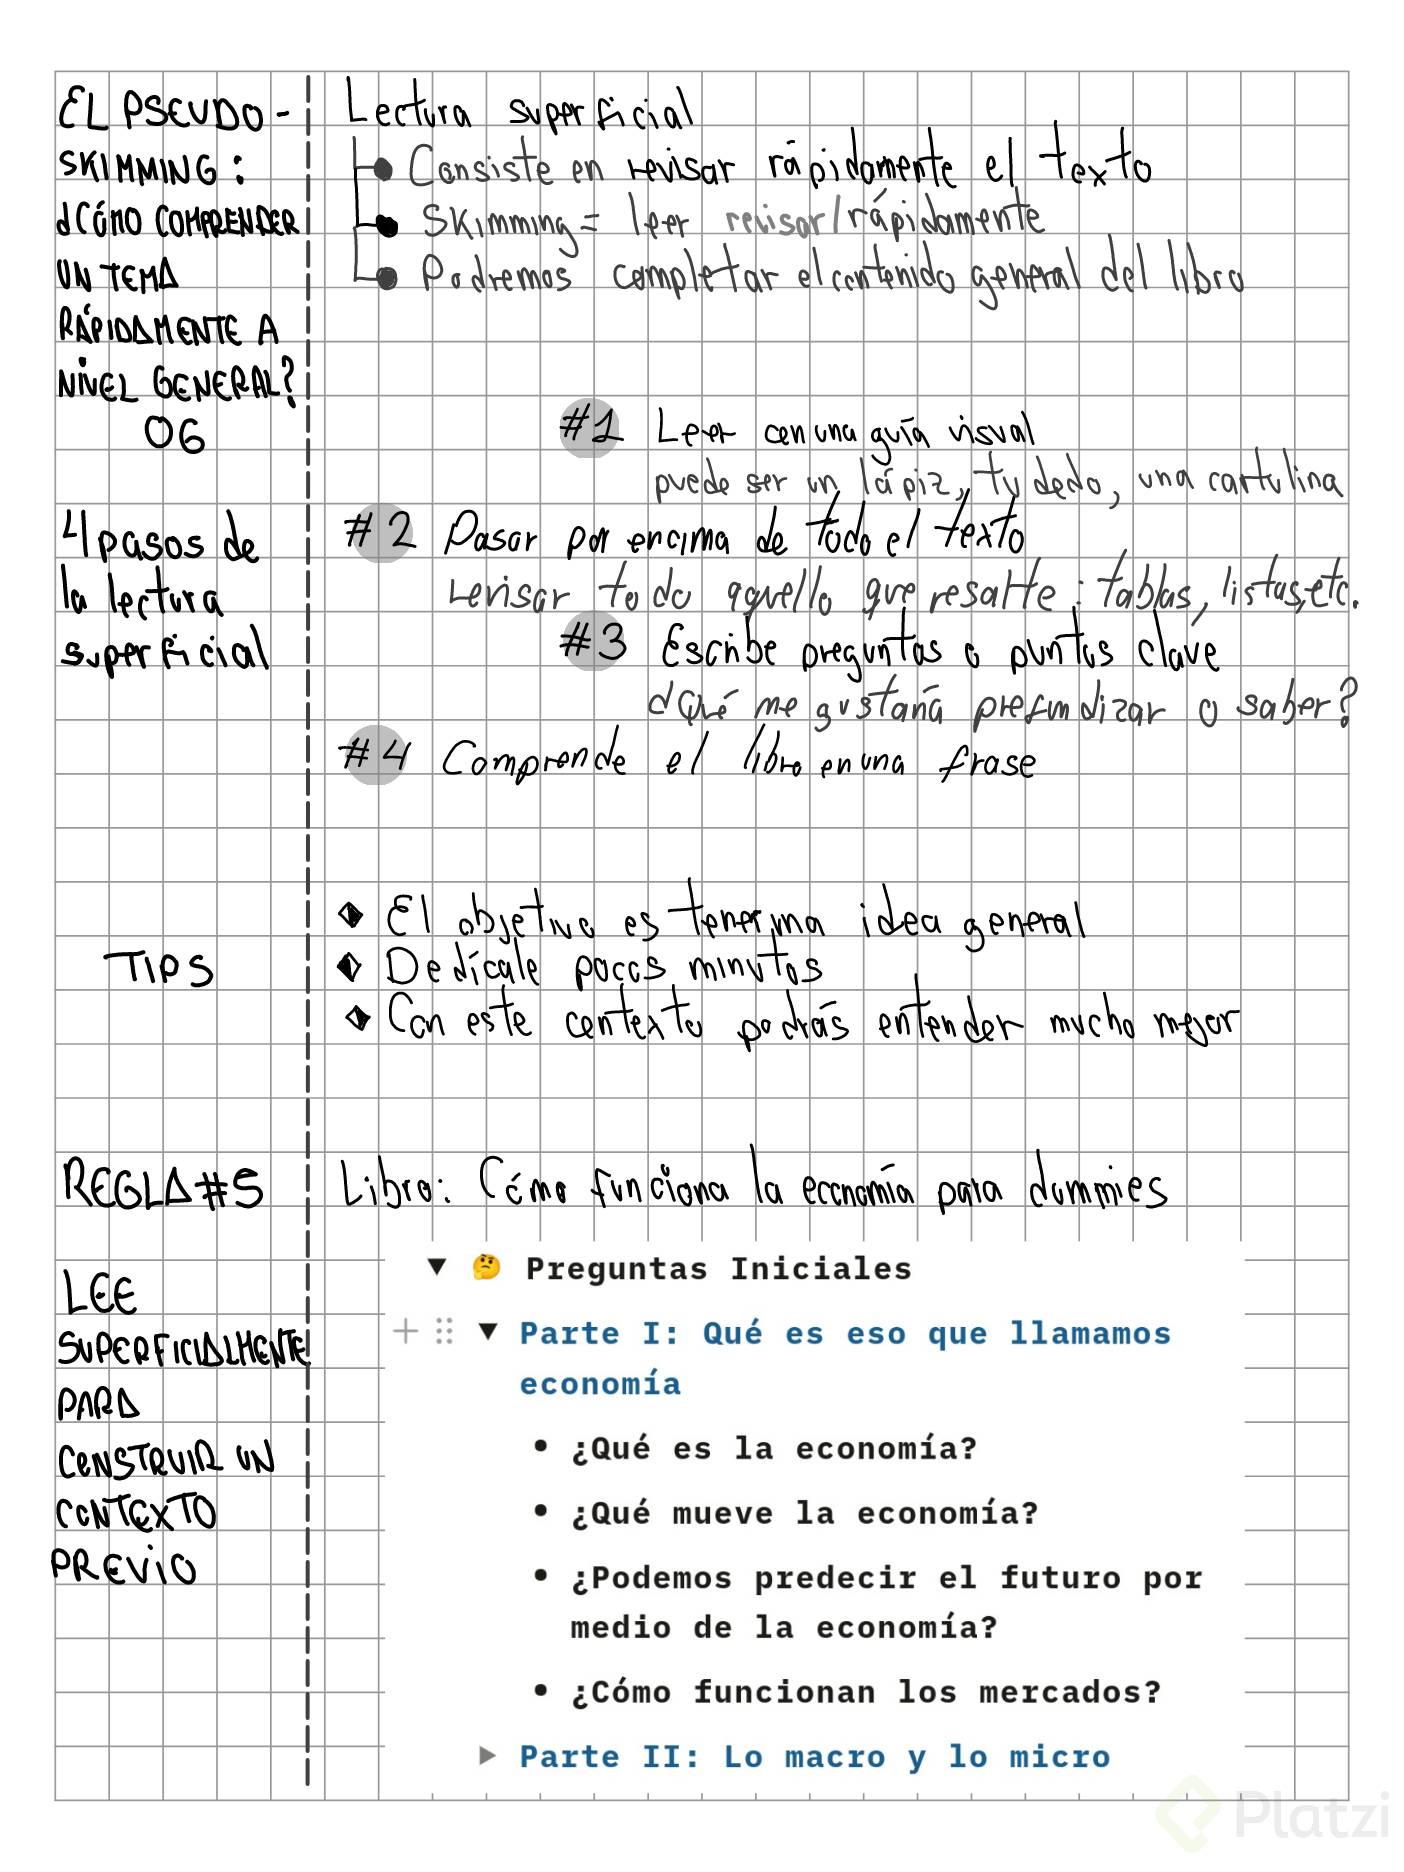 EL PSEUDO-
SKIMMING:
¿CÓMO COMPRENDER
UN TEMA
RÁPIDAMENTE A
NIVEL GENERAL?
06
Lectura superficial
Consiste en revisar rápidamente el texto
Skimming = leer revisar/rápidamente
Podremos completar el contenido general del libro
4 pasos de
la lectura
superficial
#1 Leer con una guía visual
puede ser un lápiz, tu dedo, una cartulina
#2 Pasar por encima de todo el texto
revisar todo aquello que resalte: tablas, listas, etc.
#3 Escribe preguntas o puntos clave
¿Qué me gustaría profundizar o saber?
#4 Comprende el libro en una frase
TIPS
El objetivo es tener una idea general
Dedícale pocos minutos
Con este contexto podrás entender mucho mejor
REGLA #5
LEE
SUPERFICIALMENTE
PARA
CONSTRUIR UN
CONTEXTO
PREVIO
Libro: Cómo funciona la economía para dummies
🤔 Preguntas Iniciales
Parte I: Qué es eso que llamamos
economía
• ¿Qué es la economía?
• ¿Qué mueve la economía?
• ¿Podemos predecir el futuro por
medio de la economía?
• ¿Cómo funcionan los mercados?
Parte II: Lo macro y lo micro
Platzi